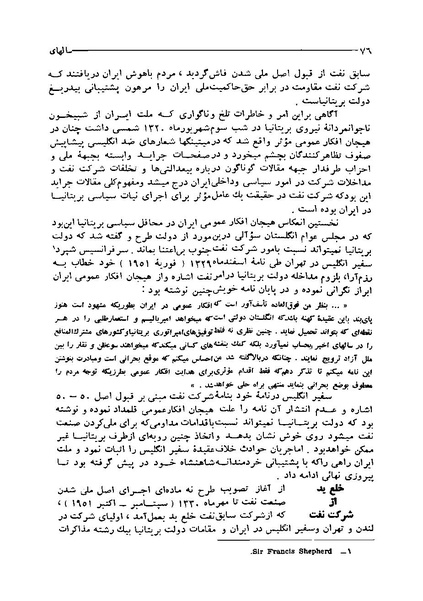 ۷۶- سالهای
سابق نفت از قبول اصل ملی شدن فاش گردید، مردم باهوش ایران دریافتند که
شرکت نفت مقاومت در برابر حق حاکمیت ملی ایران را مرهون پشتیبانی بیدریغ
دولت بریتانیاست.
آگاهی بر این امر و خاطرات تلخ و ناگواری که ملت ایران از شبیخون
ناجوانمردانهٔ نیروی بریتانیا در شب سوم شهریورماه ۱۳۲۰ شمسی داشت چنان در
هیجان افکار عمومی مؤثر واقع شد که در میتینگها شعارهای ضد انگلیسی پیشاپیش
صفوف تظاهرکنندگان بچشم میخورد و در صفحات جراید وابسته بجبههٔ ملی و
احزاب طرفدار جبهه مقالات گوناگون درباره بیعدالتی‌ها و تخلفات شرکت نفت و
مداخلات شرکت در امور سیاسی و داخلی ایران درج میشد و مفهوم کلی مقالات جراید
این بود که شرکت نفت در حقیقت یک عامل مؤثر برای اجرای نیات سیاسی بریتانیا
در ایران بوده است.
نخستین انعکاس هیجان افکار عمومی ایران در محافل سیاسی بریتانیا این بود
که در مجلس عوام انگلستان سؤالی در این مورد از دولت طرح و گفته شد که دولت
بریتانیا نمیتواند نسبت بامور شرکت نفت جنوب بی‌اعتنا بماند. سرفرانسیس شپرد۱
سفیر انگلیس در تهران طی نامهٔ اسفندماه ۱۳۲۹ (فوریهٔ ۱۹۵۱) خود خطاب به
رزم‌آرا، بلزوم مداخله دولت بریتانیا در امر نفت اشاره و از هیجان افکار عمومی ایران
ابراز نگرانی نموده و در پایان نامه خویش چنین نوشته بود:
«... بنظر من فوق‌العاده تأسف‌آور است که افکار عمومی در ایران بطوریکه مشهود است هنوز
پای‌بند این عقیدهٔ کهنه باشد که انگلستان دولتی است که میخواهد امپریالیسم و استعمارطلبی را در هر
نقطه‌ای که بتواند تحمیل نماید. چنین نظری نه فقط توفیق‌های امپراتوری بریتانیا و کشورهای مشترک‌المنافع
را در سالهای اخیر بحساب نمیآورد بلکه کمک بنقشه‌های کسانی میکند که میخواهند سوءظن و نفاق را بین
ملل آزاد ترویج نمایند. چنانکه در بالا گفته شد من احساس میکنم که موقع بحرانی است و مبادرت بنوشتن
این نامه میکنم تا تذکر دهم که فقط اقدام مؤثری برای هدایت افکار عمومی بطرزیکه توجه مردم را
معطوف بوضع بحرانی بنماید منتهی براه حلی خواهد شد.»
سفیر انگلیس در نامهٔ خود بنامهٔ شرکت نفت مبنی بر قبول اصل ۵۰ - ۵۰
اشاره و عدم انتشار آن نامه را علت هیجان افکار عمومی قلمداد نموده و نوشته
بود که دولت بریتانیا نمیتواند نسبت باقدامات مداومی که برای ملی کردن صنعت
نفت میشود روی خوش نشان بدهد و اتخاذ چنین رویه‌ای از طرف بریتانیا غیر
ممکن خواهد بود. اما جریان حوادث خلاف عقیدهٔ سفیر انگلیس را اثبات نمود و ملت
ایران راهی را که با پشتیبانی خردمندانهٔ شاهنشاه خود در پیش گرفته بود تا
پیروزی نهائی ادامه داد.
خلع ید
از
شرکت نفت
از آغاز تصویب طرح نه ماده‌ای اجرای اصل ملی شدن
صنعت نفت تا مهرماه ۱۳۳۰ (سپتامبر - اکتبر ۱۹۵۱)،
که از شرکت سابق نفت خلع ید بعمل آمد، اولیای شرکت در
لندن و تهران و سفیر انگلیس در ایران و مقامات دولت بریتانیا یک رشته مذاکرات
۱- Sir Francis Shepherd.